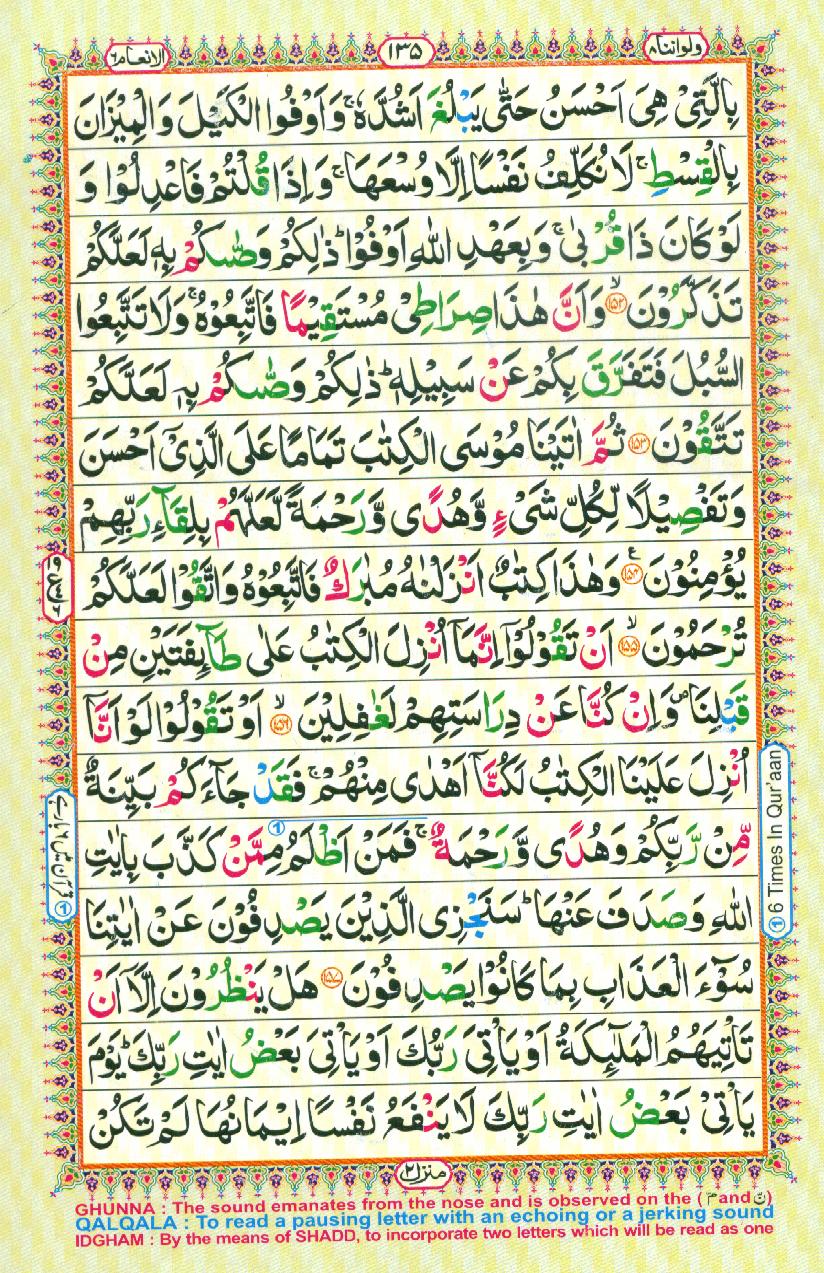 ولواننا۸
۱۳۵
الانعام۶
بِالَّتِیْ هِیَ اَحْسَنُ حَتّٰی یَبْلُغَ اَشُدَّهٗ ۚ وَاَوْفُوا الْكَیْلَ وَالْمِیْزَانَ
بِالْقِسْطِ ۚ لَا نُكَلِّفُ نَفْسًا اِلَّا وُسْعَهَا ۚ وَاِذَا قُلْتُمْ فَاعْدِلُوْا وَ
لَوْ كَانَ ذَا قُرْبٰی ۚ وَبِعَهْدِ اللّٰهِ اَوْفُوْا ؕ ذٰلِكُمْ وَصّٰىكُمْ بِهٖ لَعَلَّكُمْ
تَذَكَّرُوْنَ ۙ﴿۱۵۲﴾ وَاَنَّ هٰذَا صِرَاطِیْ مُسْتَقِیْمًا فَاتَّبِعُوْهُ ۚ وَلَا تَتَّبِعُوا
السُّبُلَ فَتَفَرَّقَ بِكُمْ عَنْ سَبِیْلِهٖ ؕ ذٰلِكُمْ وَصّٰىكُمْ بِهٖ لَعَلَّكُمْ
تَتَّقُوْنَ ﴿۱۵۳﴾ ثُمَّ اٰتَیْنَا مُوْسَی الْكِتٰبَ تَمَامًا عَلَی الَّذِیْۤ اَحْسَنَ
وَتَفْصِیْلًا لِّكُلِّ شَیْءٍ وَّهُدًی وَّرَحْمَةً لَّعَلَّهُمْ بِلِقَآءِ رَبِّهِمْ
یُؤْمِنُوْنَ ﴿۱۵۴﴾ ع وَهٰذَا كِتٰبٌ اَنْزَلْنٰهُ مُبٰرَكٌ فَاتَّبِعُوْهُ وَاتَّقُوْا لَعَلَّكُمْ
تُرْحَمُوْنَ ۙ﴿۱۵۵﴾ اَنْ تَقُوْلُوْۤا اِنَّمَاۤ اُنْزِلَ الْكِتٰبُ عَلٰی طَآىِٕفَتَیْنِ مِنْ
قَبْلِنَا ۪ وَاِنْ كُنَّا عَنْ دِرَاسَتِهِمْ لَغٰفِلِیْنَ ۙ﴿۱۵۶﴾ اَوْ تَقُوْلُوْا لَوْ اَنَّاۤ
اُنْزِلَ عَلَیْنَا الْكِتٰبُ لَكُنَّاۤ اَهْدٰی مِنْهُمْ ۚ فَقَدْ جَآءَكُمْ بَیِّنَةٌ
مِّنْ رَّبِّكُمْ وَهُدًی وَّرَحْمَةٌ ۚ فَمَنْ اَظْلَمُ مِمَّنْ كَذَّبَ بِاٰیٰتِ
اللّٰهِ وَصَدَفَ عَنْهَا ؕ سَنَجْزِی الَّذِیْنَ یَصْدِفُوْنَ عَنْ اٰیٰتِنَا
سُوْٓءَ الْعَذَابِ بِمَا كَانُوْا یَصْدِفُوْنَ ﴿۱۵۷﴾ هَلْ یَنْظُرُوْنَ اِلَّاۤ اَنْ
تَاْتِیَهُمُ الْمَلٰٓىِٕكَةُ اَوْ یَاْتِیَ رَبُّكَ اَوْ یَاْتِیَ بَعْضُ اٰیٰتِ رَبِّكَ ؕ یَوْمَ
یَاْتِیْ بَعْضُ اٰیٰتِ رَبِّكَ لَا یَنْفَعُ نَفْسًا اِیْمَانُهَا لَمْ تَكُنْ
① 6 Times In Qur'aan
منزل۲
GHUNNA : The sound emanates from the nose and is observed on the (مّ and نّ)
QALQALA : To read a pausing letter with an echoing or a jerking sound
IDGHAM : By the means of SHADD, to incorporate two letters which will be read as one